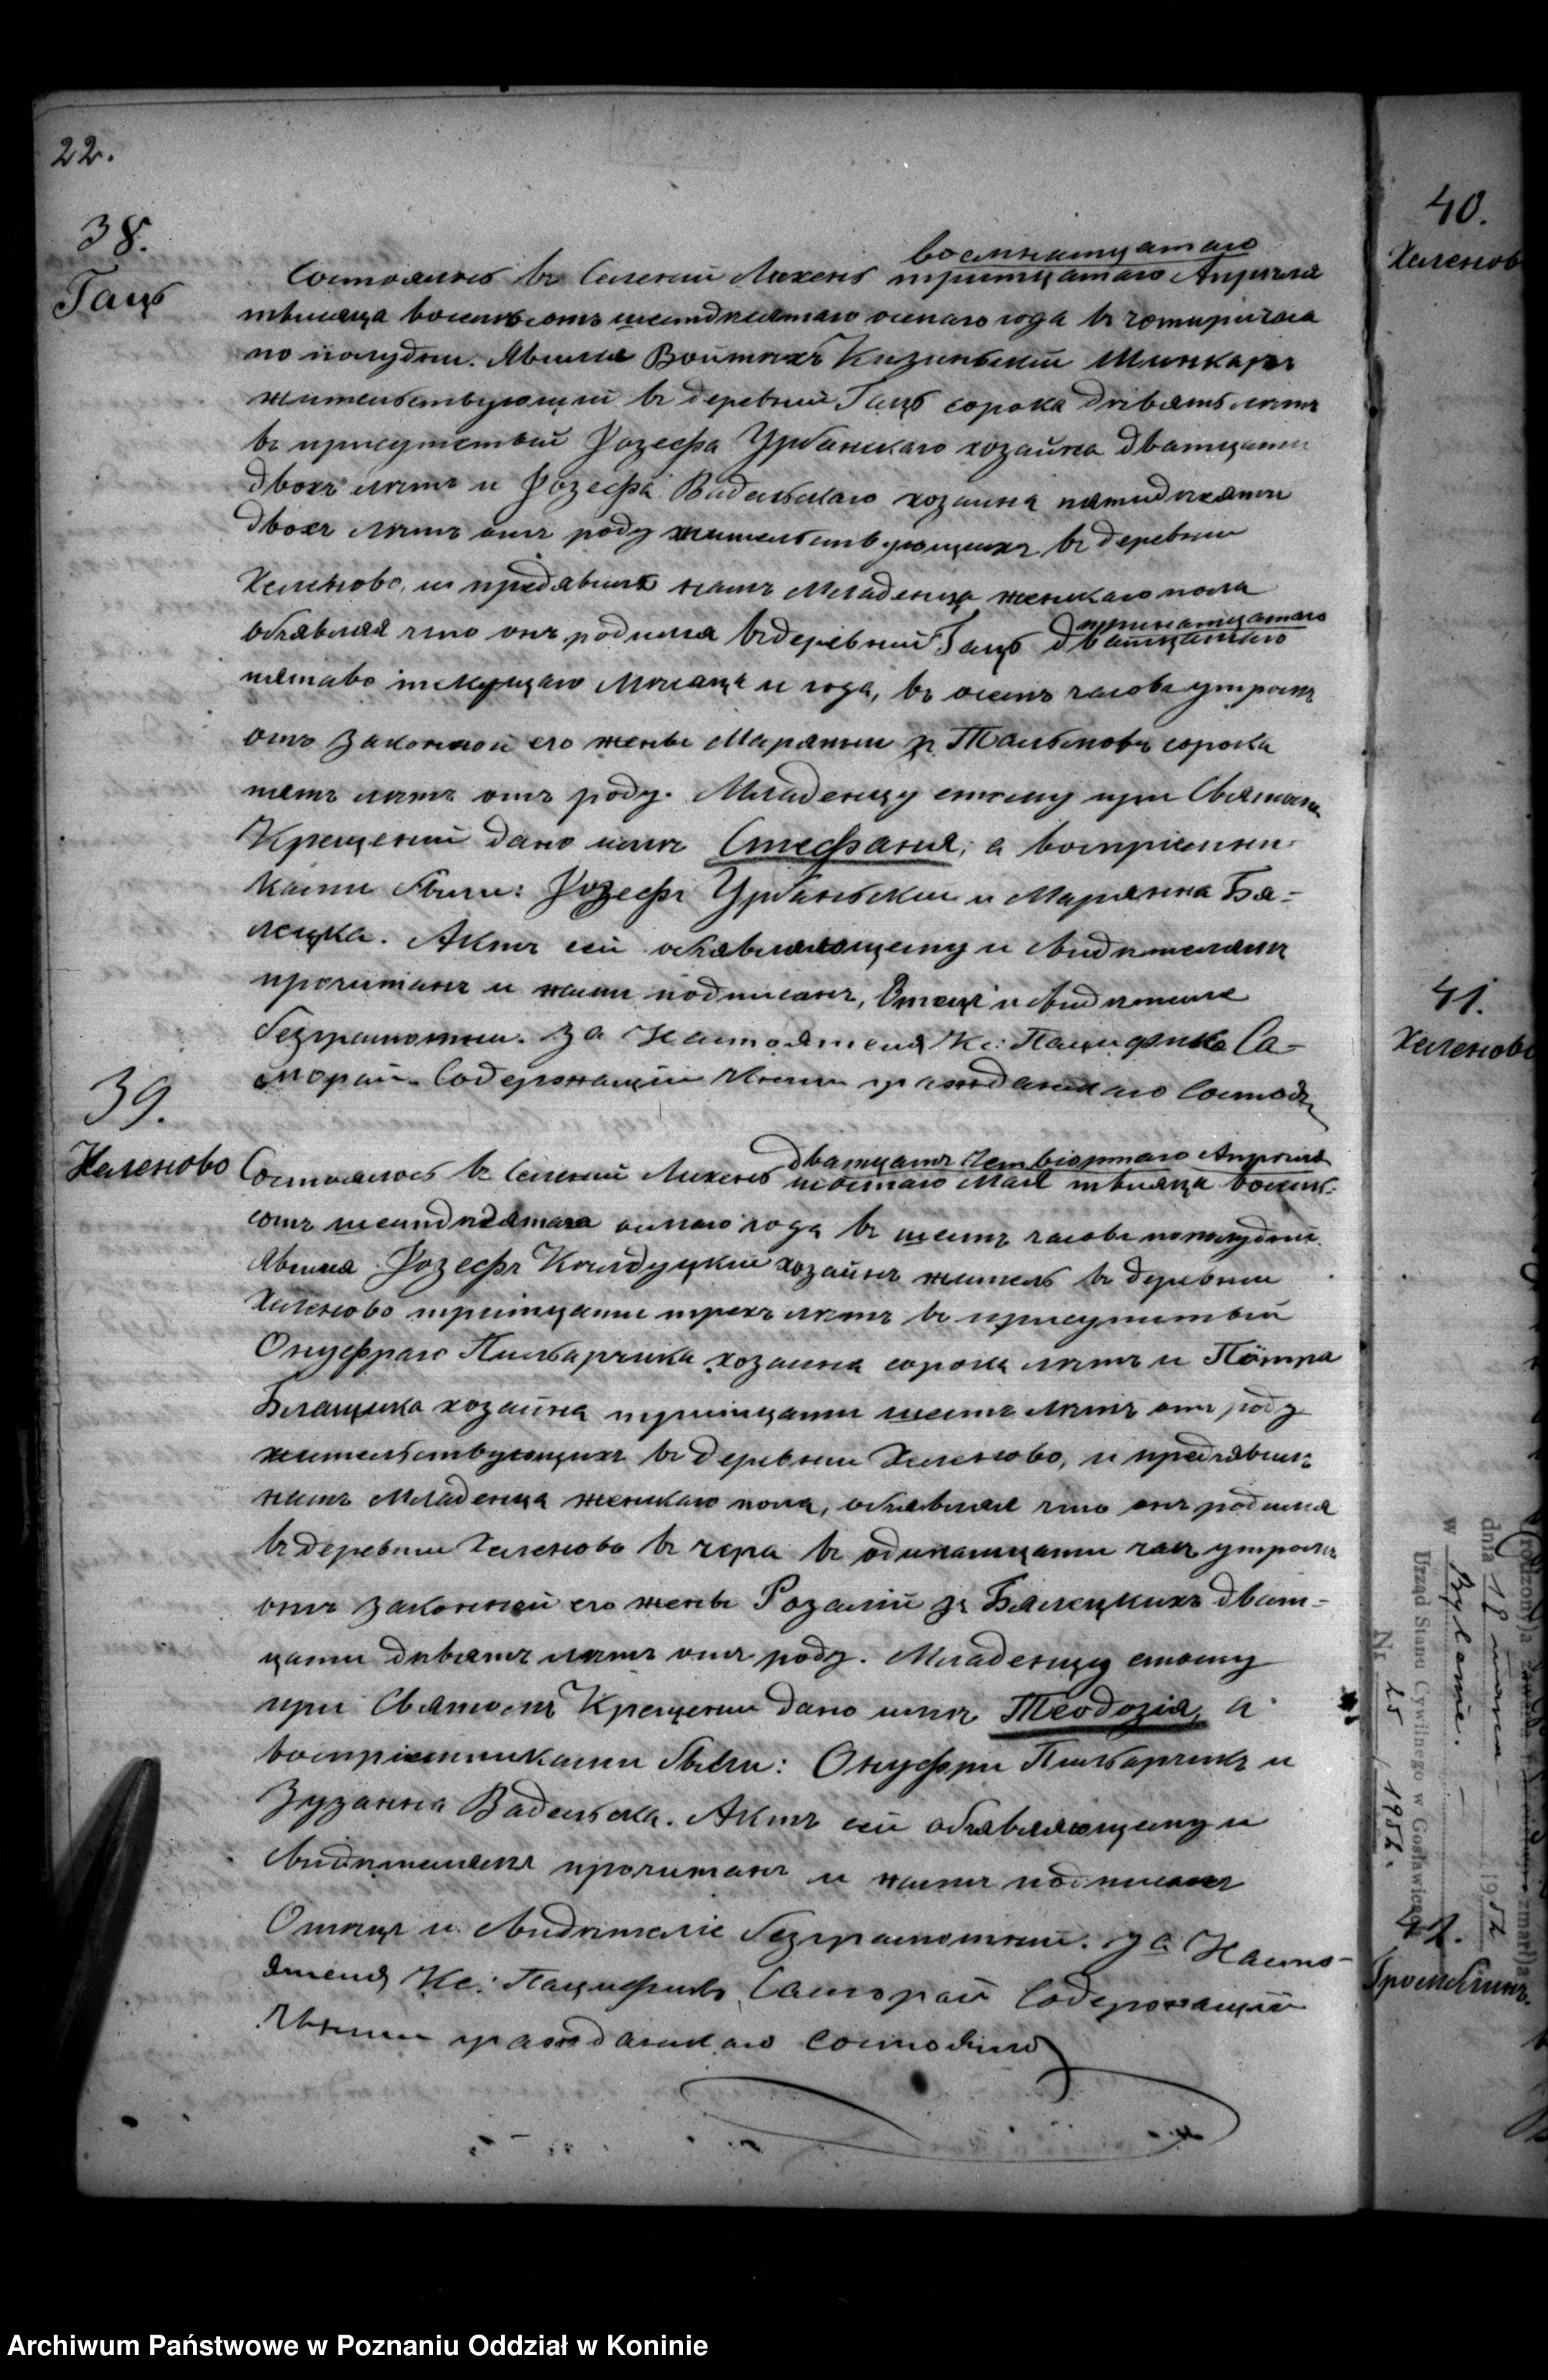 22.
38.
Гаць
восмнатцатаго
Состоялось въ Селении Лихень тритцатаго Апреля
тысяца восемьсотъ шестдесятаго осмаго года въ четыри часа
по полудни. Явился Войтехъ Шинкаръ
жительствующий въ деревнии Гаць сорока девять летъ
въ присутствии Юзефа Урбанскаго хозаина дватцати
двохъ летъ и Юзефа Вадельскаго хозаина пятидесяти
двохъ летъ отъ роду жительствующихъ въ деревнии
Хеленово, и предявилъ намъ Младенца женскаго пола
обявляя что онъ родился въ деревнии Гаць
тринатцатаго
дватцатаго
пятаго текущаго Месяца и года, въ осемь часовъ утромъ
отъ Законной его жены Марянны зъ сорока
летъ отъ роду. Младенцу етому при Святомъ
Крещении дано имя Стефания, а восприемни-
ками были: Юзефъ Урбаньскии и Марянна Бя-
лецка. Актъ сей обявляющему и Свидетелямъ
прочитанъ и нами подписанъ, Отецъ и Свидетели
безграмотны. За Настоятеля Кс: Пацификъ Са-
морай. Содержащии Акты гражданскаго Состоя
39.
Хеленово
дватцать четвіортаго Апреля
Состоялось въ Селении Лихень шестаго Мая тысяца восемь-
сотъ шестдесятаго осмаго года въ шесть часовъ пополудни.
Явился Юзефъ хозаинъ житель въ деревнии
Хеленово тритцати трехъ летъ въ присутствии
Онуфраго Пильарчика хозаина сорока летъ и Піотра
Блащика хозаина тритцати шесть летъ отъ роду
жительствующихъ въ деревнии Хеленово, и предявилъ
намъ Младенца женскаго пола, обявляя что онъ родился
въ деревнии Хеленово въ чера въ одинатцати часъ утромъ
отъ Законной его жены Розалии зъ Бялецкихъ дват-
цати девять летъ отъ роду. Младенцу етому
при Святомъ Крещении дано имя Теодозія, а
восприемниками были: Онуфри Пильарчикъ и
Зузанна Вадельска. Актъ сей обявляющему и
Свидетелямъ прочитанъ и нами подписанъ
Отецъ и Свидетеліе безграмотный. За Насто-
ятеля Кс: Пацификъ Саморай Содержащій
Акты гражданскаго Состояния
40.
Хеленов
41.
Хеленово
dnia 18 1952
w Wylanie.
Urząd Stanu Cywilnego w Gosławicach
Nr 25 / 1952.
42.
Archiwum Państwowe w Poznaniu Oddział w Koninie